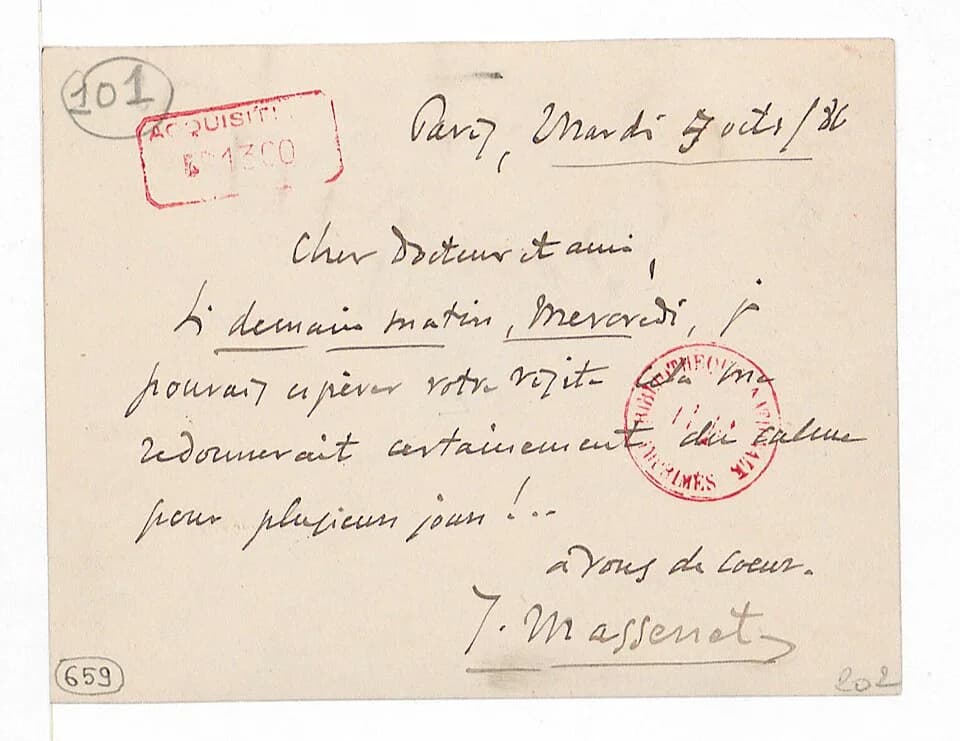 101
ACQUISITI
N° 1300
Paris, Mardi 7 octs / 86
Cher Docteur et ami,
Si demain matin, Mercredi, je
pouvais espérer votre visite cela me
redonnerait certainement du calme
pour plusieurs jours !..
à vous de coeur.
J. Massenet
BIBLIOTHEQUE NATIONALE
IMPRIMÉS
659
202